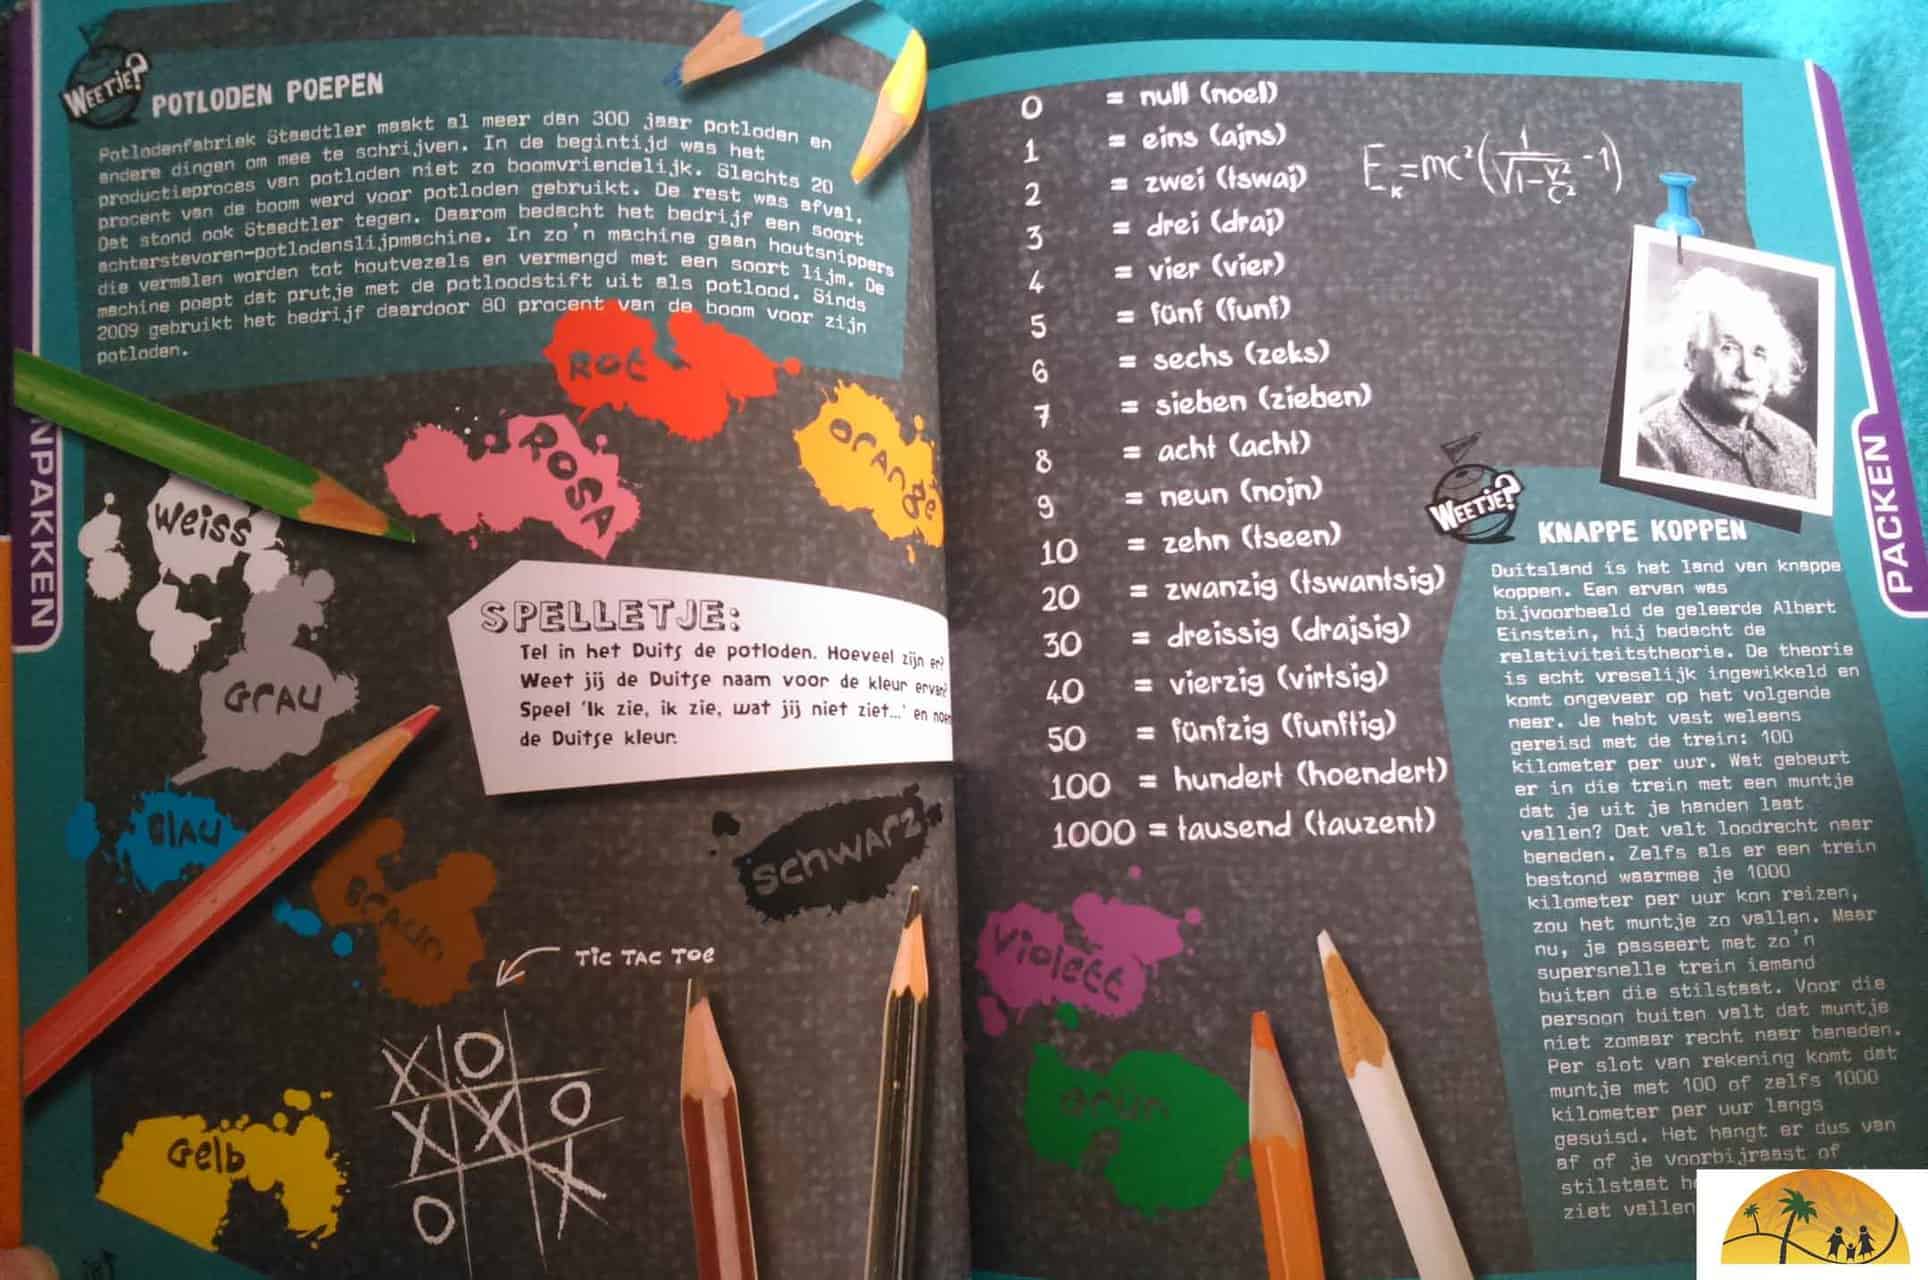 WEETJE?
POTLODEN POEPEN
Potlodenfabriek Staedtler maakt al meer dan 300 jaar potloden en
andere dingen om mee te schrijven. In de begintijd was het
productieproces van potloden niet zo boomvriendelijk. Slechts 20
procent van de boom werd voor potloden gebruikt. De rest was afval.
Dat stond ook Staedtler tegen. Daarom bedacht het bedrijf een soort
achterstevoren-potlodenslijpmachine. In zo'n machine gaan houtsnippers
die vermalen worden tot houtvezels en vermengd met een soort lijm. De
machine poept dat prutje met de potloodstift uit als potlood. Sinds
2009 gebruikt het bedrijf daardoor 80 procent van de boom voor zijn
potloden.
NPAKKEN
Rot
ROSA
Orange
Weiss
GRAU
SPELLETJE:
Tel in het Duits de potloden. Hoeveel zijn er?
Weet jij de Duitse naam voor de kleur ervan?
Speel 'Ik zie, ik zie, wat jij niet ziet...' en noem
de Duitse kleur.
BLAU
Braun
SCHWARZ
TIC TAC TOE
X O
X X O
O X
Gelb
0 = null (noel)
1 = eins (ajns)
2 = zwei (tswaj)
3 = drei (draj)
4 = vier (vier)
5 = fünf (funf)
6 = sechs (zeks)
7 = sieben (zieben)
8 = acht (acht)
9 = neun (nojn)
10 = zehn (tseen)
20 = zwanzig (tswantsig)
30 = dreissig (drajsig)
40 = vierzig (virtsig)
50 = fünfzig (funftig)
100 = hundert (hoendert)
1000 = tausend (tauzent)
Violett
Grün
Eₖ=mc²(1/√(1-v²/c²) -1)
PACKEN
WEETJE?
KNAPPE KOPPEN
Duitsland is het land van knappe
koppen. Een ervan was
bijvoorbeeld de geleerde Albert
Einstein, hij bedacht de
relativiteitstheorie. De theorie
is echt vreselijk ingewikkeld en
komt ongeveer op het volgende
neer. Je hebt vast weleens
gereisd met de trein: 100
kilometer per uur. Wat gebeurt
er in die trein met een muntje
dat je uit je handen laat
vallen? Dat valt loodrecht naar
beneden. Zelfs als er een trein
bestond waarmee je 1000
kilometer per uur kon reizen,
zou het muntje zo vallen. Maar
nu, je passeert met zo'n
supersnelle trein iemand
buiten die stilstaat. Voor die
persoon buiten valt dat muntje
niet zomaar recht naar beneden.
Per slot van rekening komt dat
muntje met 100 of zelfs 1000
kilometer per uur langs
gesuisd. Het hangt er dus van
af of je voorbijraast of
stilstaat
ziet vallen